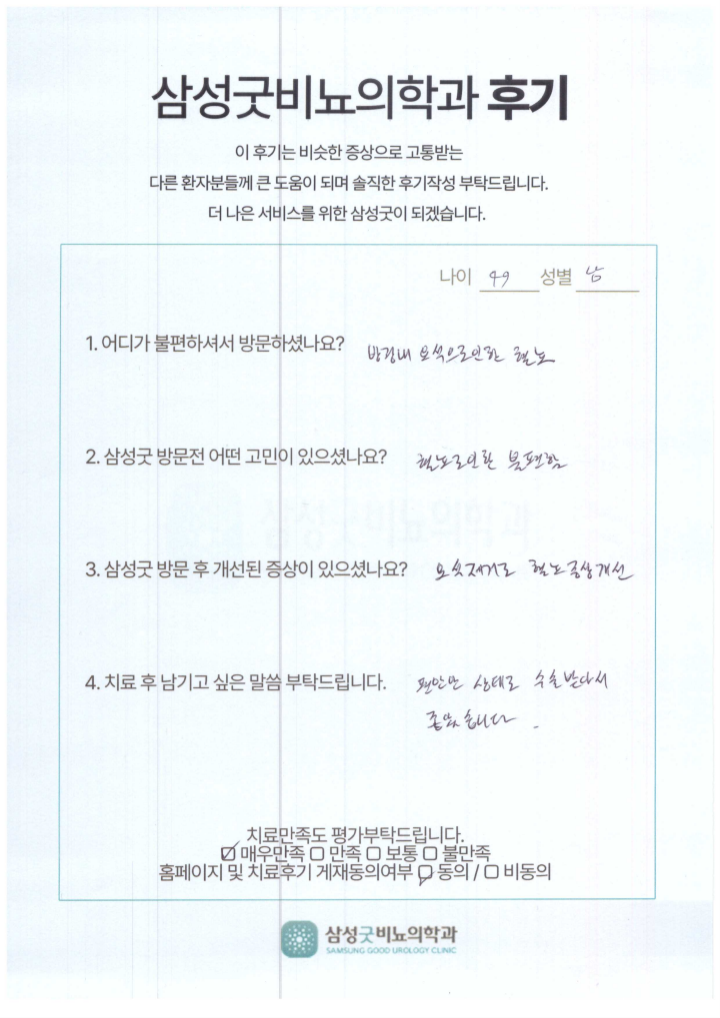 삼성굿비뇨의학과 후기
이 후기는 비슷한 증상으로 고통받는
다른 환자분들께 큰 도움이 되며 솔직한 후기작성 부탁드립니다.
더 나은 서비스를 위한 삼성굿이 되겠습니다.
나이 49 성별 남
1. 어디가 불편하셔서 방문하셨나요? 방광내 요석으로인한 혈뇨
2. 삼성굿 방문전 어떤 고민이 있으셨나요? 혈뇨로인한 불편함
3. 삼성굿 방문 후 개선된 증상이 있으셨나요? 요석제거로 혈뇨증상개선
4. 치료 후 남기고 싶은 말씀 부탁드립니다. 편안한 상태로 수술받아서
좋았습니다.
치료만족도 평가부탁드립니다.
☑ 매우만족 ☐ 만족 ☐ 보통 ☐ 불만족
홈페이지 및 치료후기 게재동의여부 ☑ 동의 / ☐ 비동의
삼성굿비뇨의학과
SAMSUNG GOOD UROLOGY CLINIC